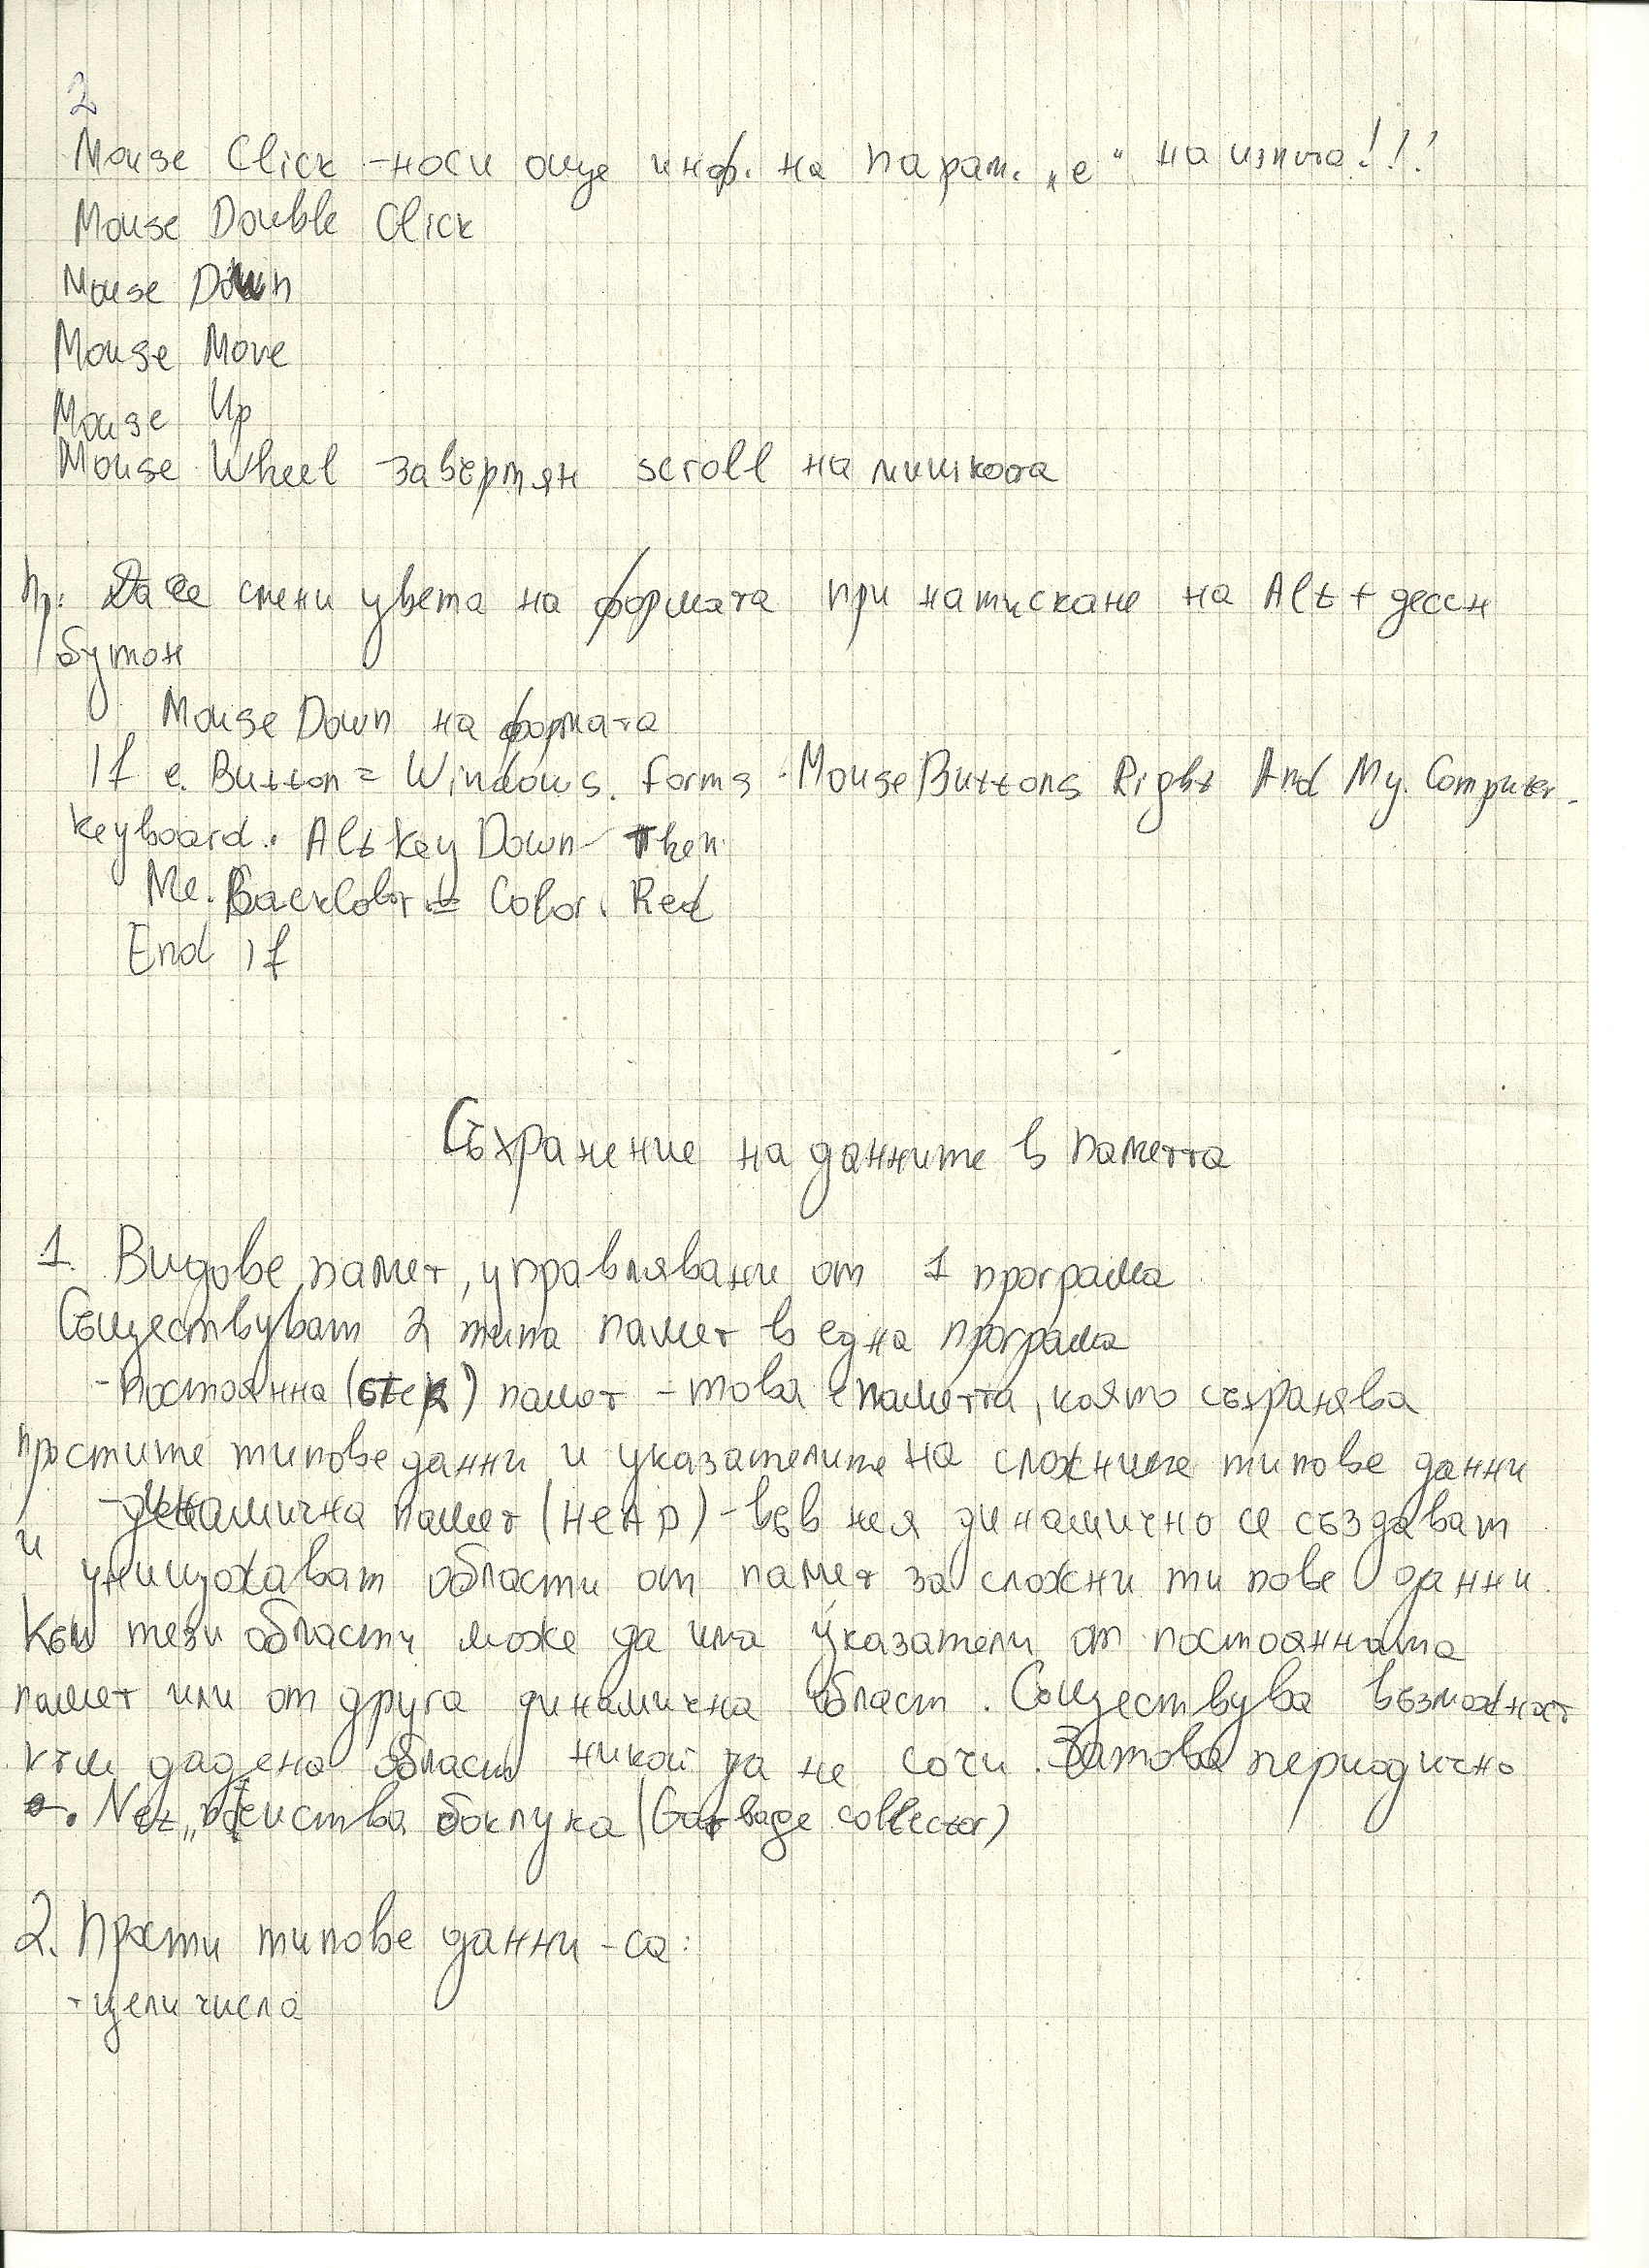 2
Mouse Click - носи още инф. на парам. „е“ на изпита!!!
Mouse Double Click
Mouse Down
Mouse Move
Mouse Up
Mouse Wheel - завъртян scroll на мишката
Пр: Да се смени цвета на формата при натискане на Alt + десен
бутон
Mouse Down на формата
If e. Button = Windows. Forms. MouseButtons Right And My. Computer.
Keyboard. AltKeyDown Then
Me. BackColor = Color. Red
End If
Съхранение на данните в паметта
1. Видове памет, управлявани от 1 програма
Съществуват 2 типа памет в една програма
- постоянна (stek) памет - това е паметта, която съхранява
простите типове данни и указателите на сложните типове данни
- динамична памет (HeAp) - във нея динамично се създават
и унищожават области от памет за сложни типове данни.
Към тези области може да има указатели от постоянната
памет или от друга динамична област. Съществува възможност
към дадена област никой да не сочи. Затова периодично
. Net „ боклука (Garbage collector)
2. Прости типове данни - са:
- цели числа